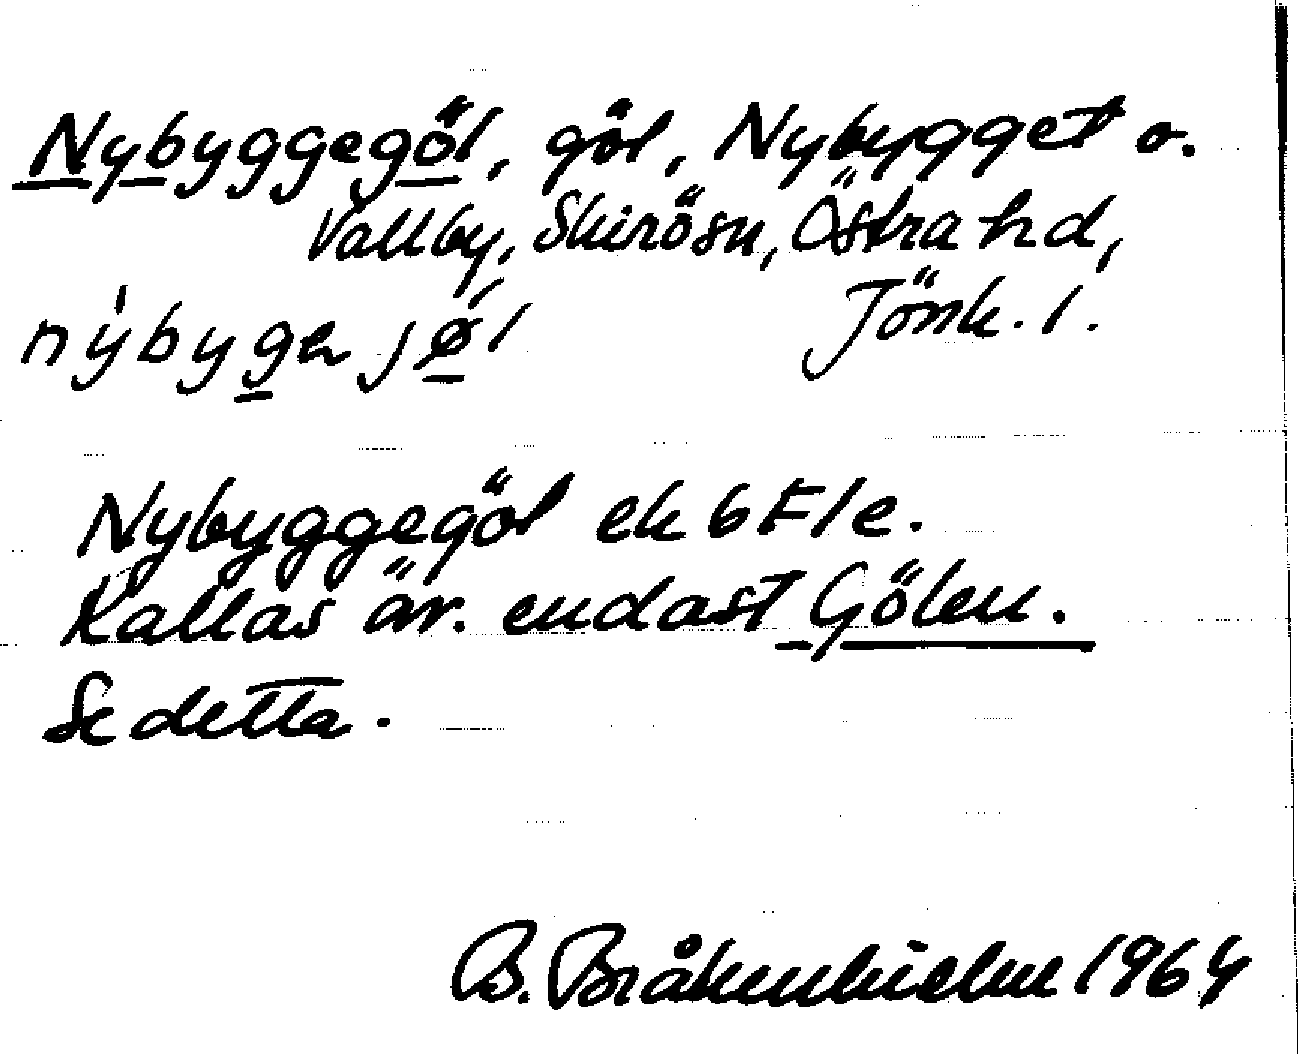 Nybyggegöl, göl, Nybygget o.
Vallby, Skirösn, Östra hd,
Jönk. l.
nýbygejǿl
Nybyggegöl ek 6 F 1 e.
Kallas äv. endast Gölen.
Se detta.
B. Bråkenhielm 1964